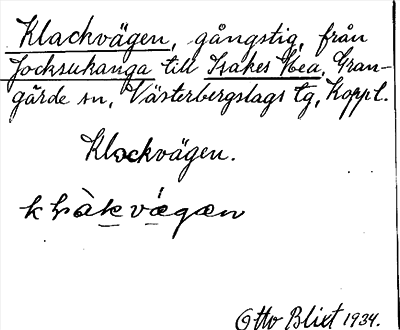 Klackvägen, gångstig, från
Jocksukanga till Isakes Mea, Gran-
gärde sn, Västerbergslags tg, Koppl.
Klackvägen.
Otto Blixt 1934.